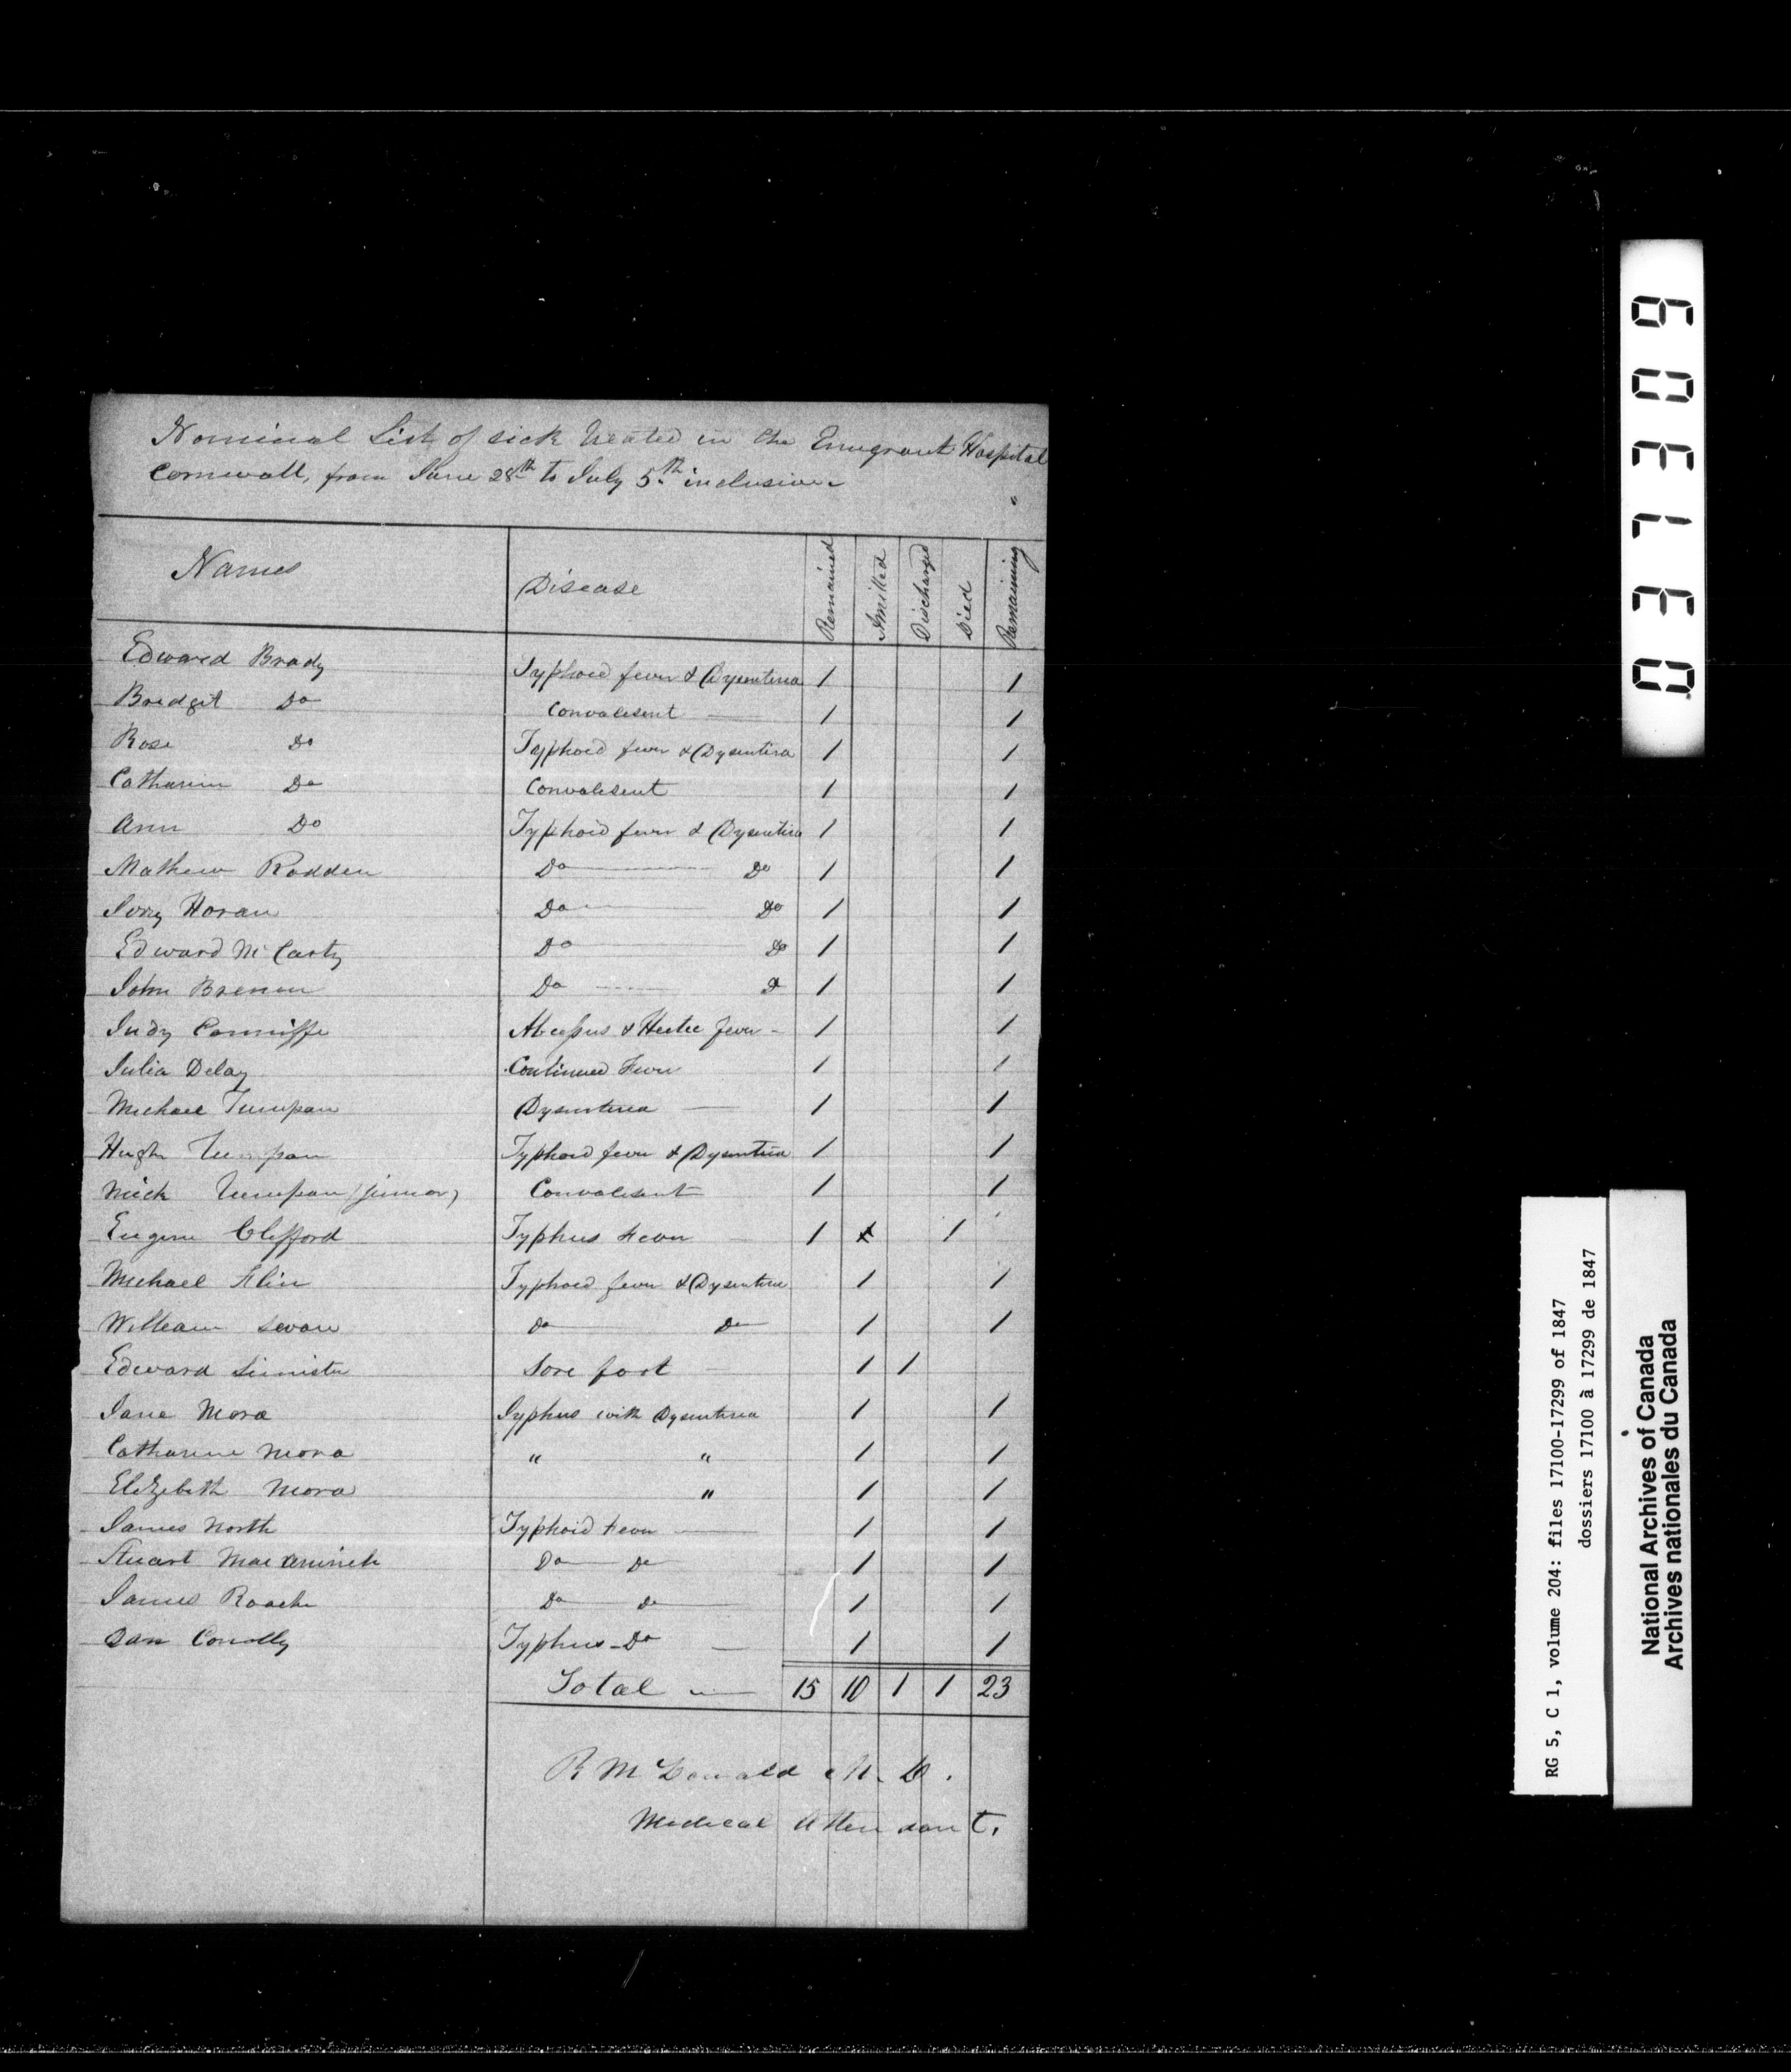 Nominal List of sick treated in the Emigrant Hospital
Cornwall, from June 28th to July 5th inclusive
Names Disease Remained Admitted Discharged Died Remaining
Edward Brady Typhoid fever & Dysenteria 1 1
Bridget Do Convalesent 1 1
Rose Do Typhoid fever & Dysentira 1 1
Catharine Do Convalesent 1 1
Ann Do Typhoid fever & Dysentira 1 1
Mathew Rodden Do Do 1 1
Horan Do Do 1 1
Edward McCarty Do Do 1 1
John Brenan Do D 1 1
Judy Conniffe & Hectic fever - 1 1
Julia Delay Continued Fever 1 1
Michael Dysenteria 1 1
Hugh Typhoid fever & Dysenteria 1 1
Mick (junior) Convalesent 1 1
Eugene Clifford Typhus Fever 1 1
Michael Typhoid fever & Dysenteria 1 1
William Do Do 1 1
Edward Sore foot 1 1
Jane Mora Typhus with Dysenteria 1 1
Catharine Mora " " 1 1
Elizebeth Mora " 1 1
James North Typhoid Fever 1 1
Stuart Do Do 1 1
James Roach Do Do 1 1
Dan Conolly Typhus - Do 1 1
Total 15 10 1 1 23
R McDonald M.D.
Medical Attendant.
037309
RG 5, C 1, volume 204: files 17100-17299 of 1847
dossiers 17100 à 17299 de 1847
National Archives of Canada
Archives nationales du Canada